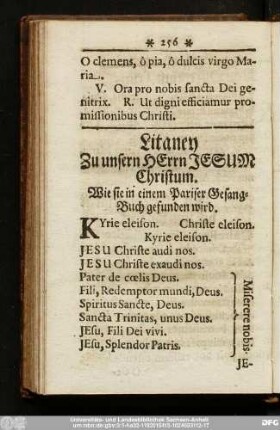 * 256 *
O clemens, ô pia, ô dulcis virgo Ma-
ria.
V. Ora pro nobis sancta Dei ge-
nitrix. R. Ut digni efficiamur pro-
missionibus Christi.
Litaney
Zu unsern HErrn JESUM
Christum.
Wie sie in einem Pariser Gesang-
Buch gefunden wird.
KYrie eleison. Christe eleison.
Kyrie eleison.
JESU Christe audi nos.
JESU Christe exaudi nos.
Pater de cœlis Deus.
Fili, Redemptor mundi, Deus.
Spiritus Sancte, Deus.
Sancta Trinitas, unus Deus.
JEsu, Fili Dei vivi.
JEsu, Splendor Patris.
Miserere nobis.
JE-
Universitäts- und Landesbibliothek Sachsen-Anhalt
DFG